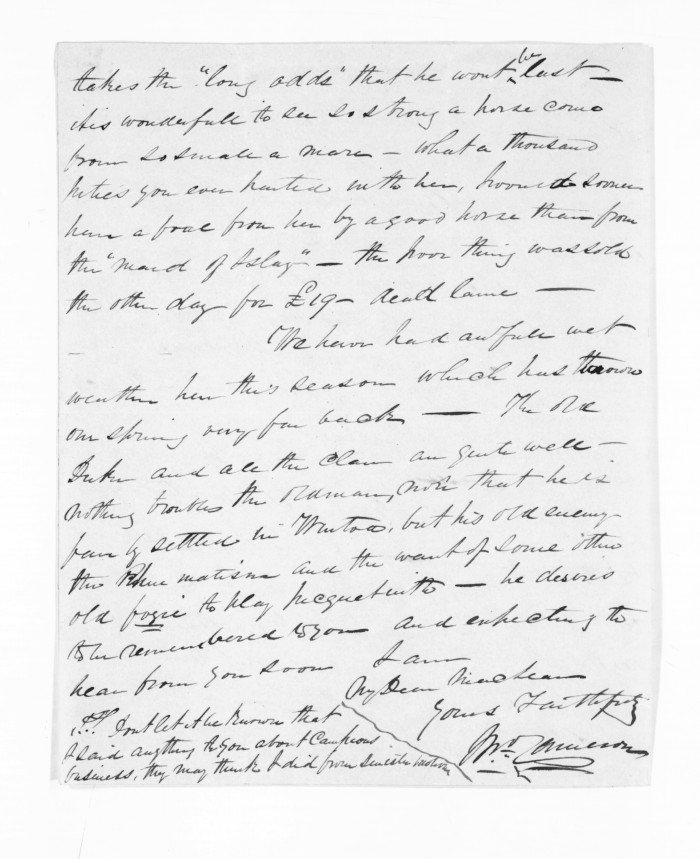 takes the "long odds" that he wont be last —
it is wonderfull to see so strong a horse come
from so small a mare — What a thousand
pities you ever parted with her, I would sooner
have a foal from her by a good horse than from
the "Maid of Islay" — the poor thing was sold
the other day for £19 – dead lame —
We have had awfull wet
weather here this season which has thrown
our spring very far back — The old
Duke and all the clan are quite well –
nothing troubles the old man, now that he is
fairly settled in, but his old enemy
the Rheumatism and the want of some other
old fogie to play picquet with — he desires
to be remembered to you and expecting to
hear from you soon I am
My Dear Maclean
Yours Faithfully
Cameron
Dont let it be known that
I said anything to you about
business, they may think I did from sinister motives